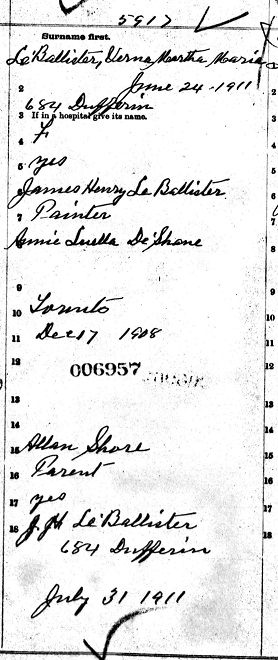 5917
Surname first.
Le'Ballister, Verna Martha Maria
2 June 24-1911
684 Dufferin
3 If in a hospital give its name.
4 F
5 yes
6 James Henry Le Ballister
7 Painter
8 Annie Luella De'Shane
9
10 Toronto
11 Dec 17 1908
12
006957
13
14
15 Allan Shore
16 Parent
17 yes
18 J. H. Le'Ballister
684 Dufferin
July 31 1911